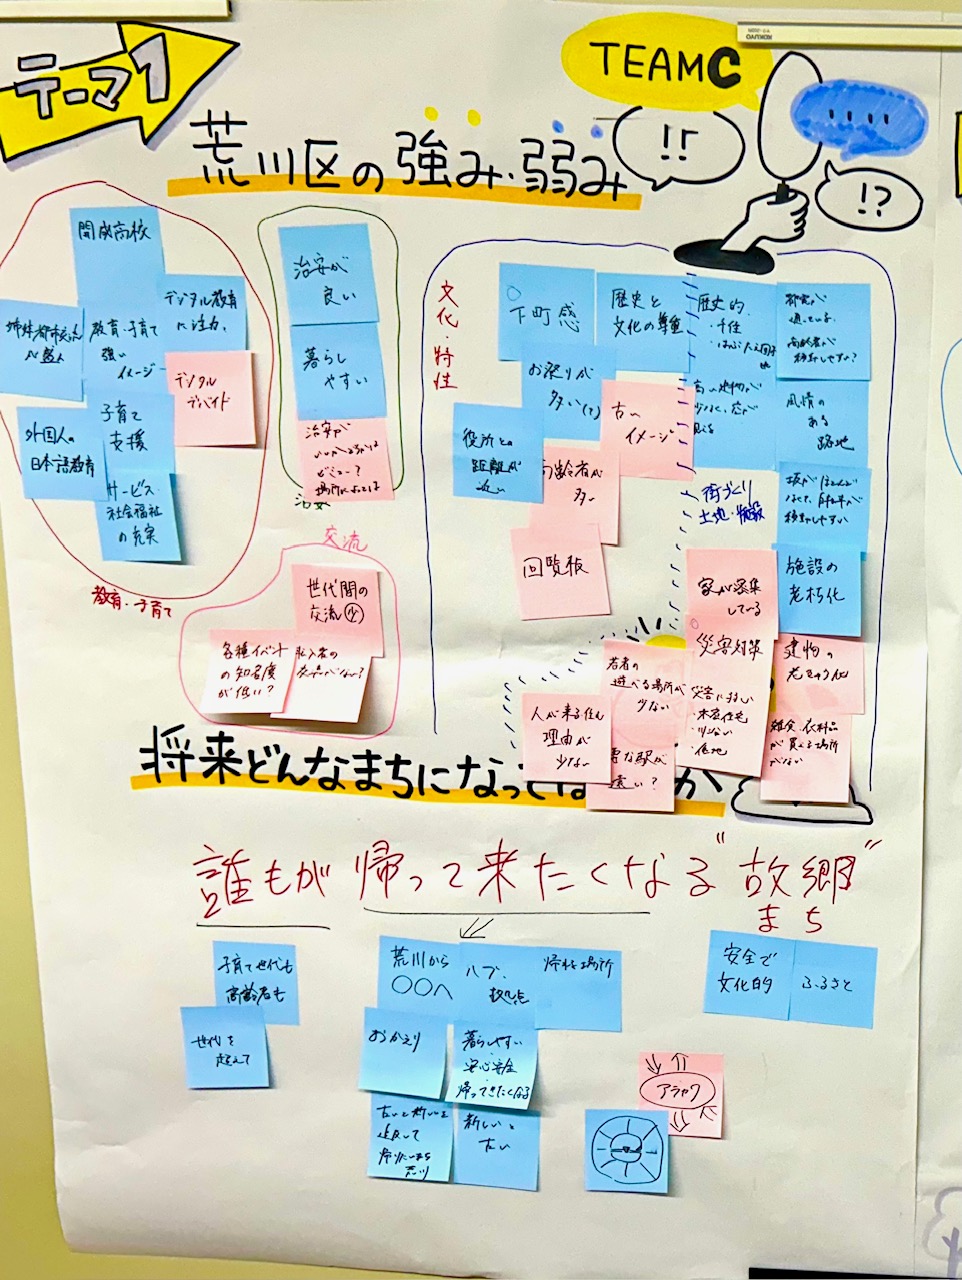 テーマ1
TEAM C
!!
!?
荒川区の強み・弱み
開成高校
姉妹都市
が盛ん
教育・子育て
強い
イメージ
デジタル教育
に注力
デジタル
デバイド
外国人の
日本語教育
子育て
支援
サービス・
社会福祉
の充実
教育・子育て
治安が
良い
暮らし
やすい
治安が
治安
交流
世代間の
交流 少
各種イベント
の知名度
が低い?
文化・特性
下町感
歴史と
文化の
歴史的
お祭りが
多い(?)
古い
イメージ
役所との
距離が
近い
高齢者が
多い
回覧板
都電が
通っている
高齢者が
移動しやすい?
風情の
ある
路地
坂がほとんど
なくて、自転車が
移動しやすい
街づくり
土地・施設
家が密集
している
施設の
老朽化
災害対策
災害に弱い
・木造住宅
・低地
建物の
老きゅう化
若者の
遊べる場所が
少ない
人が来る住む
理由が
少ない
遠い?
雑貨、衣料品
が買える場所
がない
将来どんなまちになって
か
誰もが帰って来たくなる"故郷"
まち
子育て世代も
高齢者も
世代を
超えて
荒川から
○○へ
ハブ、
拠点
帰れる場所
おかえり
暮らしやすい
安心安全
帰ってきたくなる
古いと新しいを
荒川
新しいと
古い
安全で
文化的
ふるさと
アラカワ